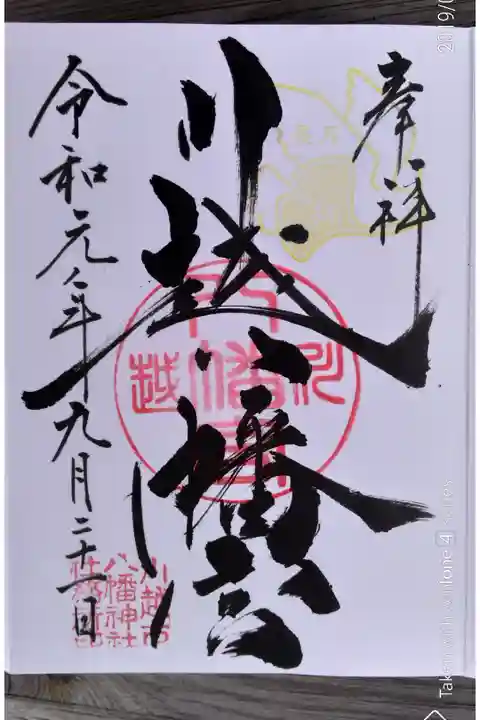 奉拝
川越八幡宮
令和元年九月二十二日
川越
八幡宮
川越市
八幡神社
社務所印
2019/0
Taken with
tone 4 series